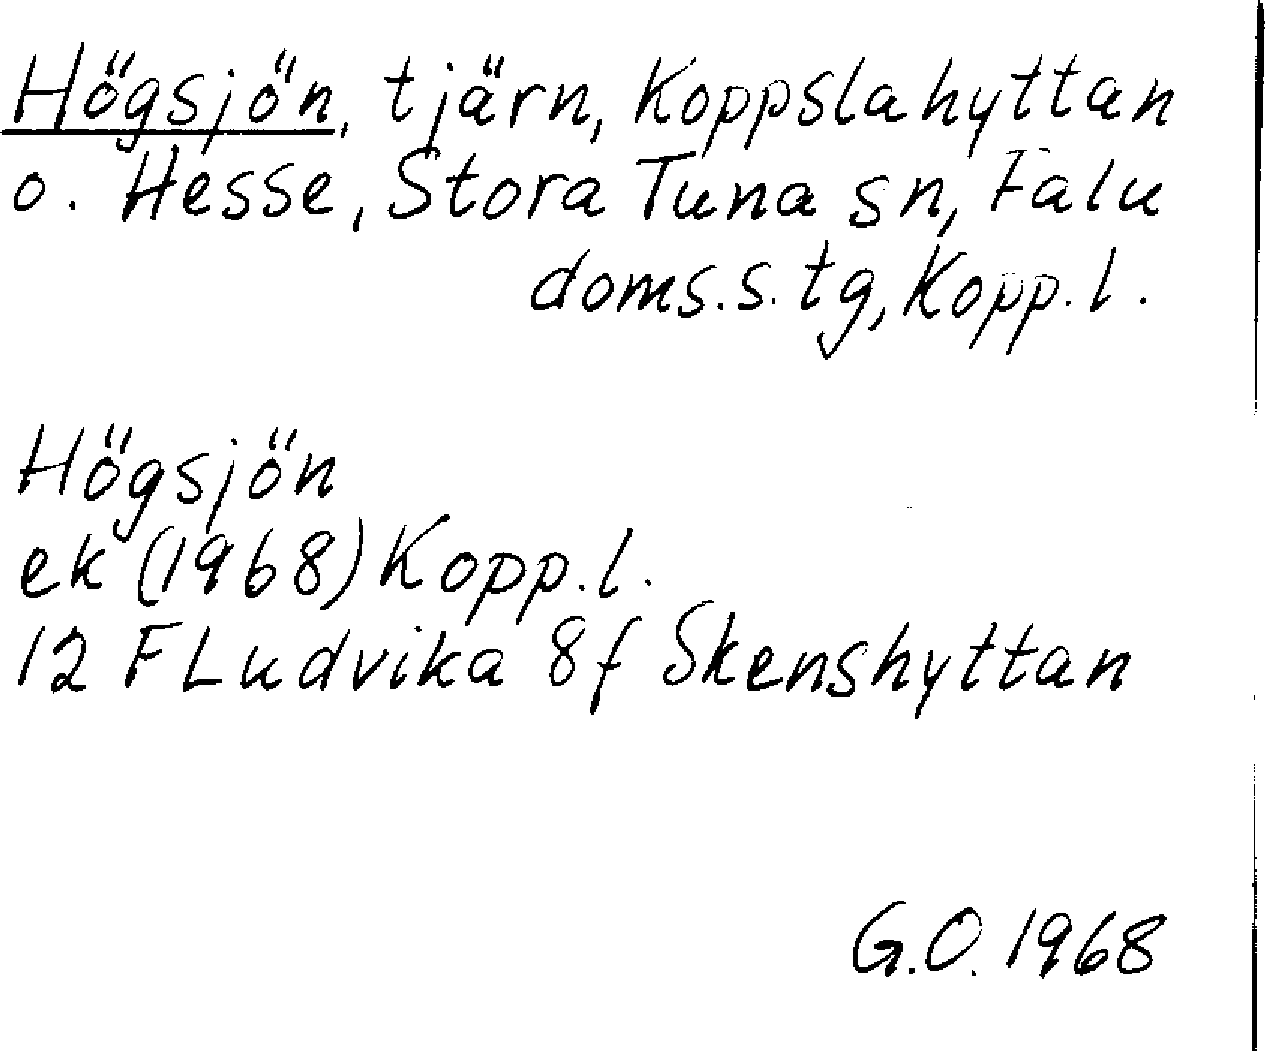 Högsjön, tjärn, Koppslahyttan
o. Hesse, Stora Tuna sn, Falu
doms.s. tg, Kopp. l.
Högsjön
ek (1968) Kopp. l.
12 F Ludvika 8f Skenshyttan
G.O. 1968